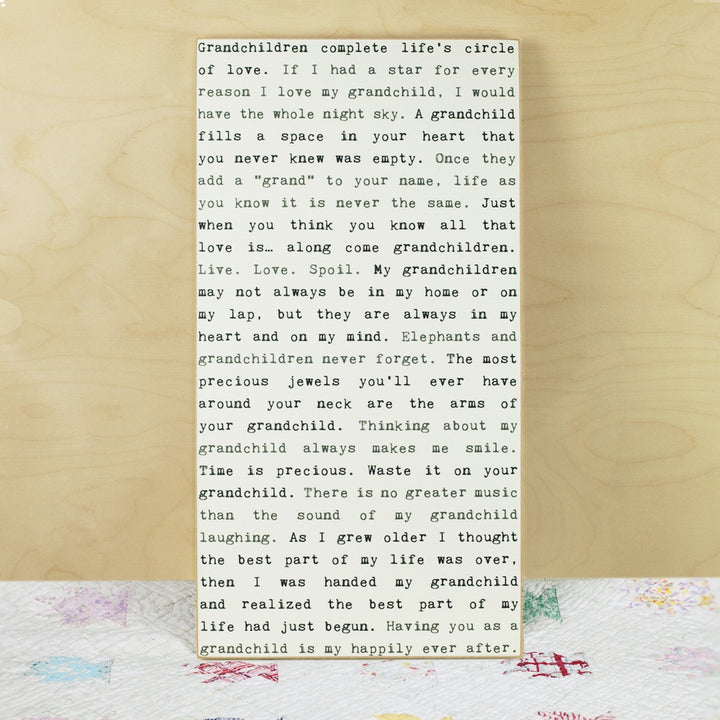 Grandchildren complete life's circle
of love. If I had a star for every
reason I love my grandchild, I would
have the whole night sky. A grandchild
fills a space in your heart that
you never knew was empty. Once they
add a "grand" to your name, life as
you know it is never the same. Just
when you think you know all that
love is… along come grandchildren.
Live. Love. Spoil. My grandchildren
may not always be in my home or on
my lap, but they are always in my
heart and on my mind. Elephants and
grandchildren never forget. The most
precious jewels you'll ever have
around your neck are the arms of
your grandchild. Thinking about my
grandchild always makes me smile.
Time is precious. Waste it on your
grandchild. There is no greater music
than the sound of my grandchild
laughing. As I grew older I thought
the best part of my life was over,
then I was handed my grandchild
and realized the best part of my
life had just begun. Having you as a
grandchild is my happily ever after.